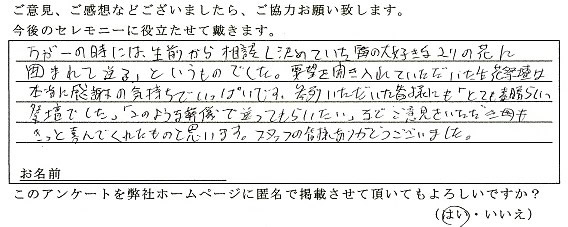 ご意見、ご感想などございましたら、ご協力お願い致します。
今後のセレモニーに役立たせて戴きます。
万が一の時には、生前から相談し決めていた「母の大好きなユリの花に
囲まれて送る」というものでした。要望を聞き入れていただいた生花祭壇は
本当に感謝の気持ちでいっぱいです。参列いただいた皆様にも「とても素晴らしい
祭壇でした。」「このような葬儀で送ってもらいたい」までご意見をいただき母も
きっと喜んでくれたものと思います。スタッフの皆様ありがとうございました。
お名前
このアンケートを弊社ホームページに匿名で掲載させて頂いてもよろしいですか？
(はい・いいえ)